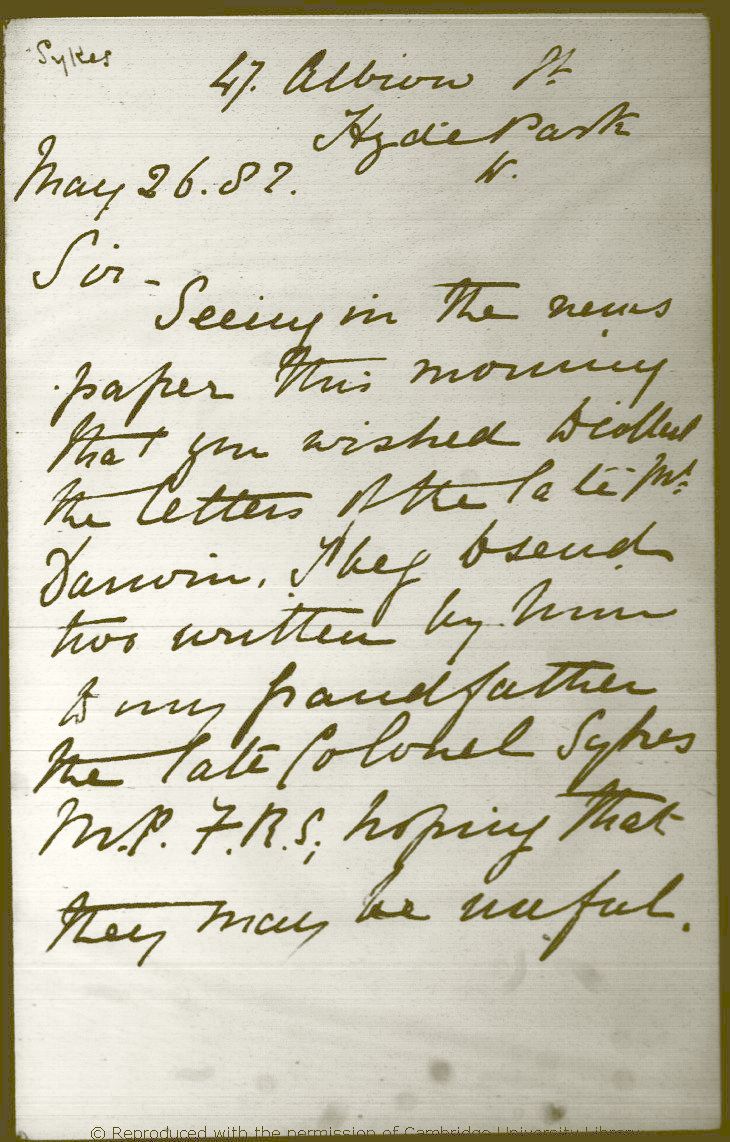 Sykes
47. Albion St
Hyde Park
W.
May 26. 82.
Sir -
Seeing in the news
paper this morning
that you wished to collect
the letters of the late Mr.
Darwin, I beg to send
two written by him
to my grandfather
the late Colonel Sykes
M.P. F.R.S; hoping that
they may be useful.
© Reproduced with the permission of Cambridge University Library